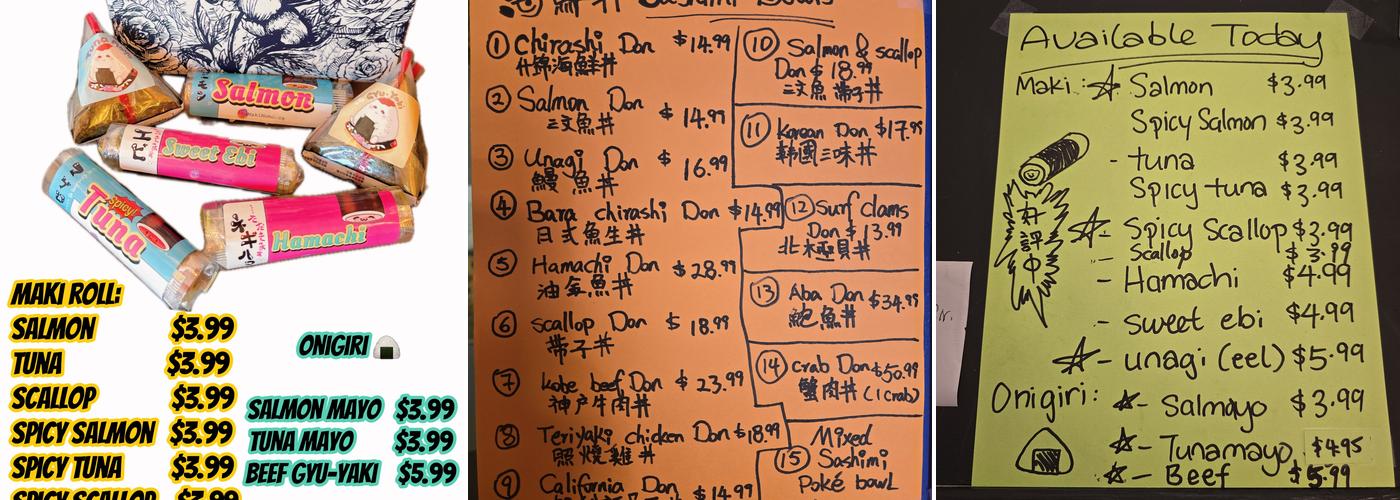 Tuna
Salmon
Gyu-Yaki
Sweet Ebi
Spicy!
Tuna
Hamachi
MAKI ROLL:
SALMON $3.99
TUNA $3.99
SCALLOP $3.99
SPICY SALMON $3.99
SPICY TUNA $3.99
SPICY SCALLOP $3.99
ONIGIRI
SALMON MAYO $3.99
TUNA MAYO $3.99
BEEF GYU-YAKI $5.99
Sashimi Bowls
① Chirashi Don $14.99
什錦海鮮丼
② Salmon Don $14.99
三文魚丼
③ Unagi Don $16.99
鰻魚丼
④ Bara chirashi Don $14.99
日式魚生丼
⑤ Hamachi Don $28.99
油甘魚丼
⑥ scallop Don $18.99
帶子丼
⑦ kobe beef Don $23.99
神戸牛肉丼
⑧ Teriyaki chicken Don $18.99
照燒雞丼
⑨ California Don $14.99
⑩ Salmon & scallop
Don $18.99
三文魚帶子丼
⑪ Korean Don $17.95
韩國三味丼
⑫ Surf clams
Don $13.99
北極貝丼
⑬ Aba Don $34.99
鮑魚丼
⑭ crab Don $50.99
蟹肉丼 (1 crab)
Mixed
⑮ Sashimi
Poké bowl
Available Today
Maki: ☆ Salmon $3.99
Spicy Salmon $3.99
- tuna $3.99
Spicy tuna $3.99
☆- Spicy Scallop $3.99
- Scallop $3.99
- Hamachi $4.99
- sweet ebi $4.99
☆- unagi (eel) $5.99
好評中
Onigiri: ☆- Salmayo $3.99
☆- Tunamayo $4.95
☆- Beef $5.99